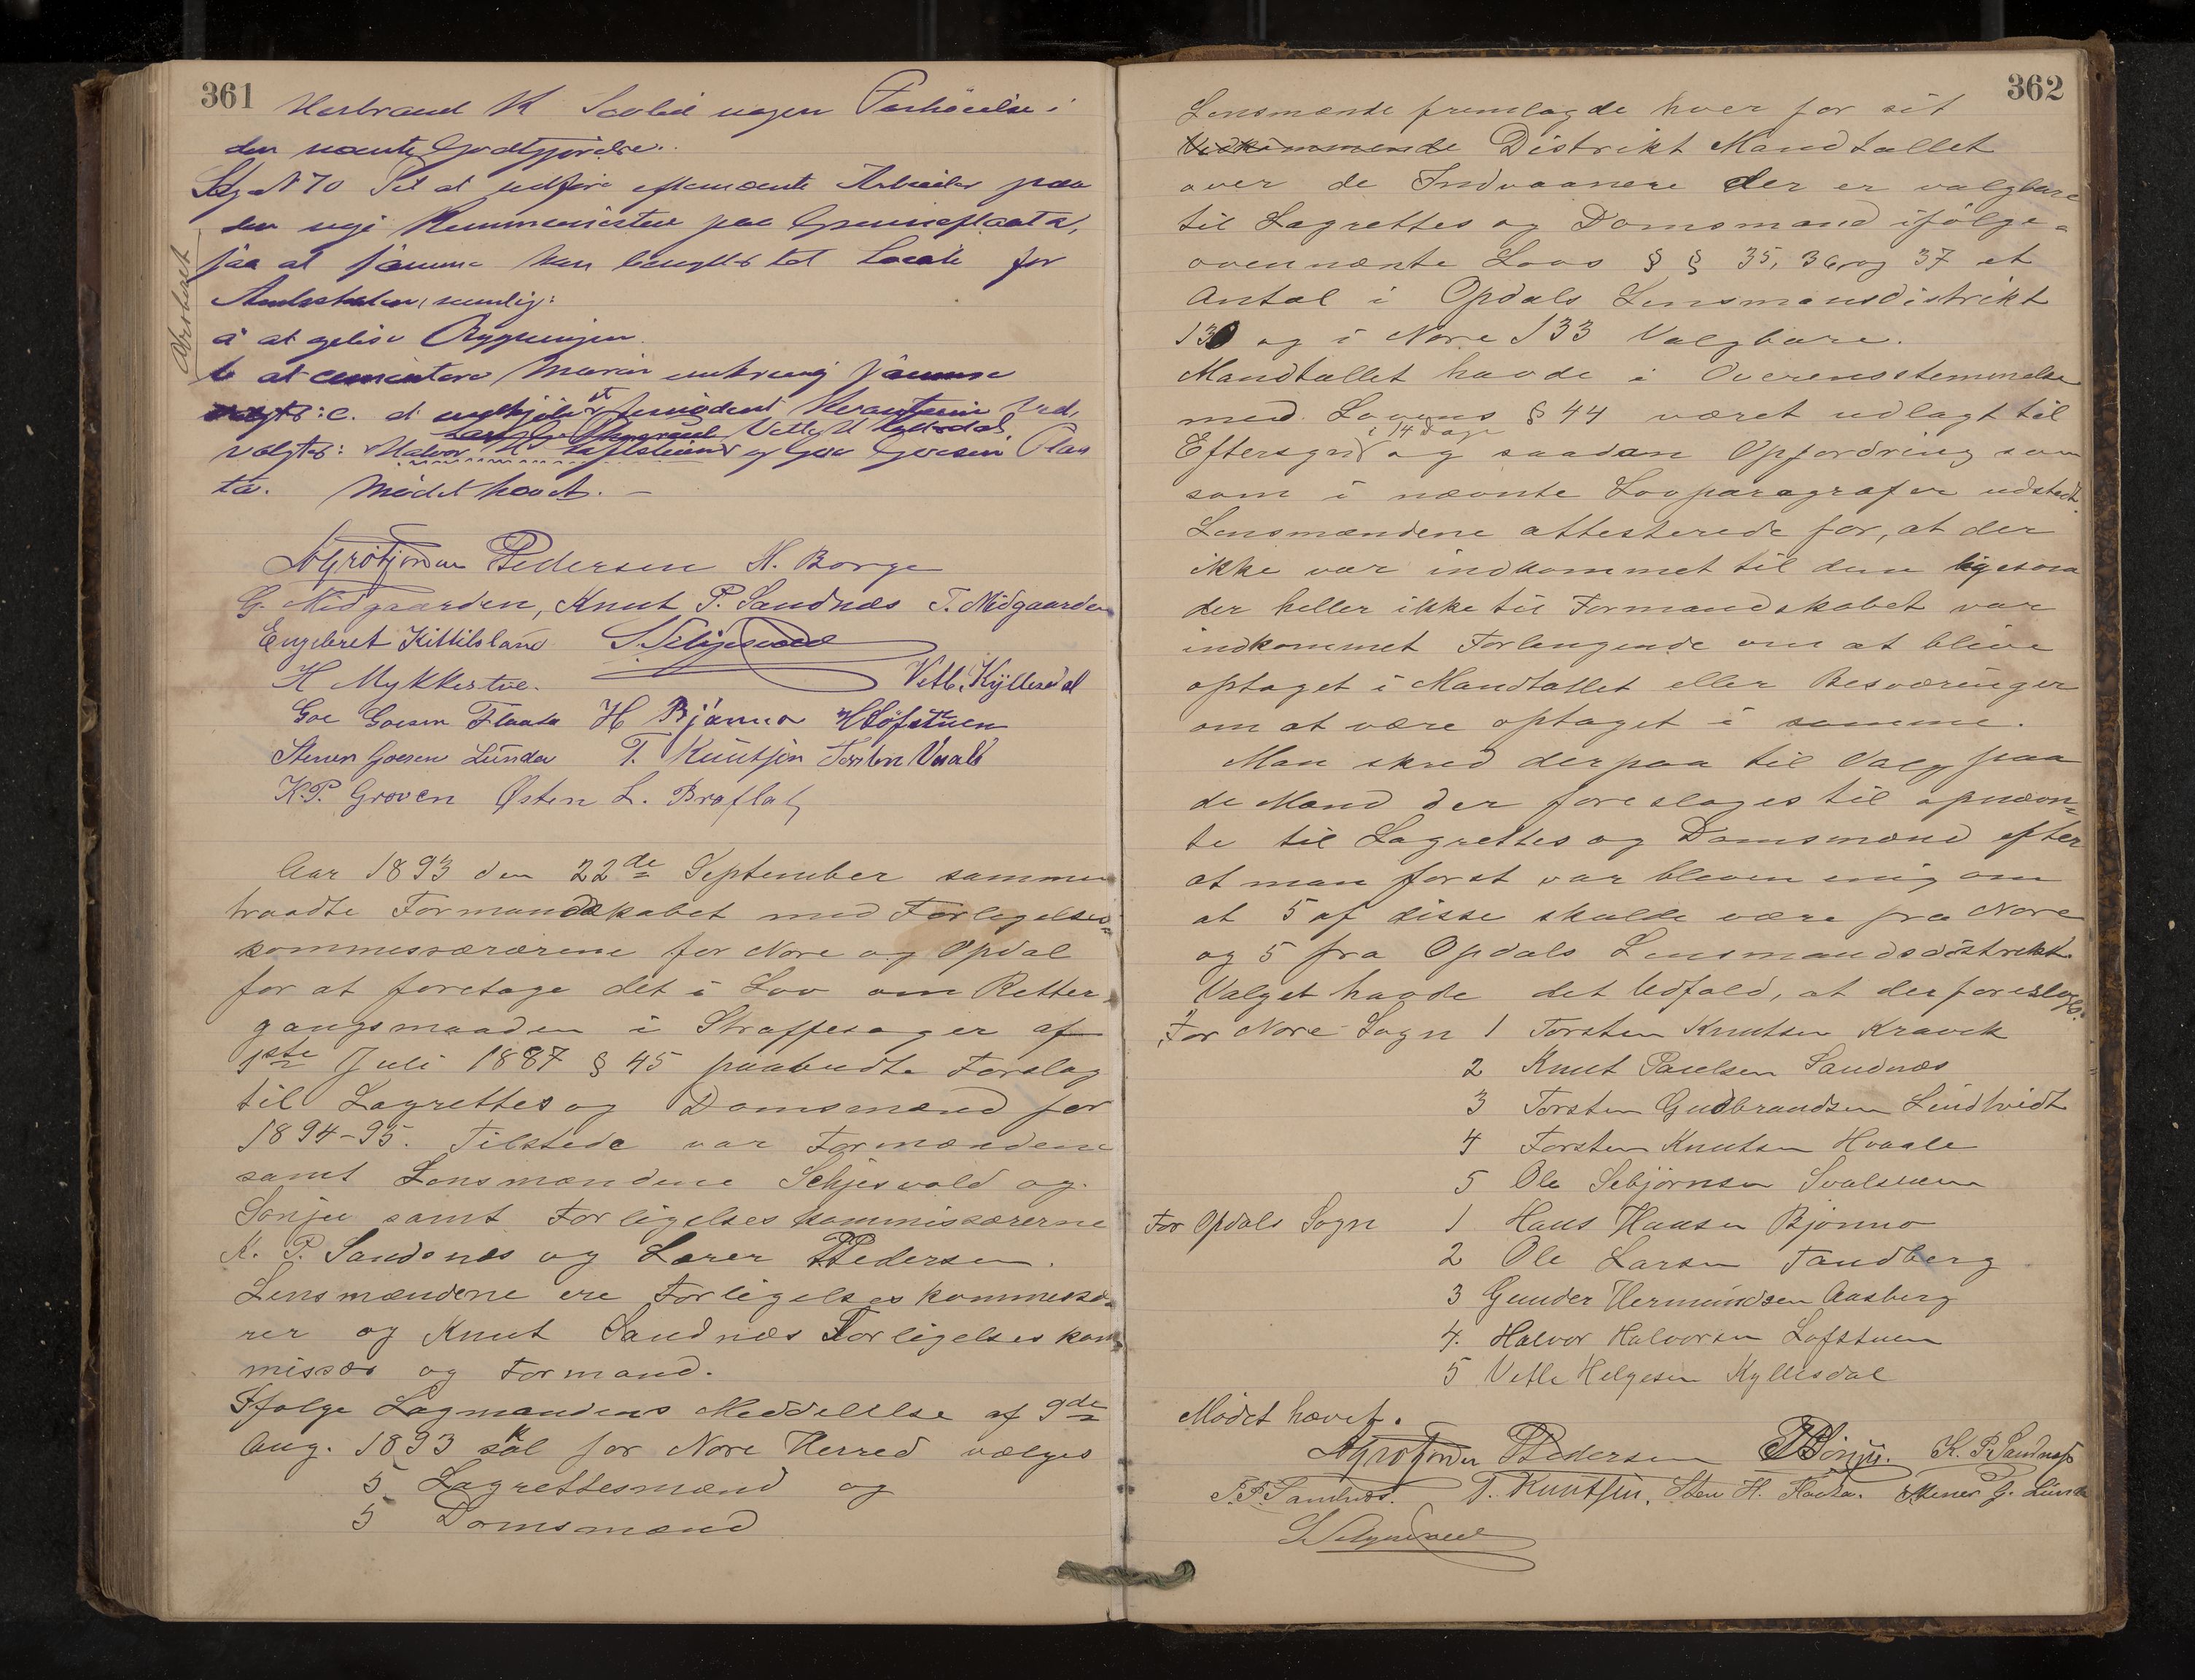 361
Herbrand K nogen Forhöielse i
den nævnte Godtgjörelse.
Sag N 70 Til at udføre eftenævnte Arbeider paa
den nye
saa at samme kan benyttes til Locale for
nemlig:
a at gulve Bygningen
b at cementere Muren omkring samme
c. at
Valgtes: Halvor H Løfstuen og Goe Goesen Flaa
ta. Mødet hævet. —
Pedersen H. Borge
G. Midgaarden, Knut P. Sandnæs T. Midgaarden
Engebret Kittilsland
H Mykkestue. Vetle Kyllesdal
Goe Goesen Flaata H Bjønno H Löfstuen
Stener Goesen Lunda T. Knutsen Torsten Vaale
K.P. Groven Østen L. Braflat
Aar 1893 den 22de September sammen
traadte Formandskabet med Forligelses=
kommissærerene for Nore og Opdal
for at foretage det i Lov om Retter
gangsmaaden i Straffesager af
1ste Juli 1887 § 45 paabudte Forslag
til Lagrettes og Domsmænd for
1894-95. Tilstede var Formændene
samt Lensmændene Seljesvold og
Sønju samt Forligelseskommissærerne
K. P. Sandsnes og Lærer Pedersen.
Lensmændene ere Forligelses kommissæ=
rer og Knut Sandnæs Forligelses kom
missær og Formand.
Ifølge Lagmandens Meddelelse af 9de
Aug. 1893 skal for Nore Herred vælges
5 Lagrettesmænd og
5 Domsmænd
362
Lensmændte fremlagde hver for sit
Vedkommende Distrikt Mandtallet
over de Indvaanere der er valgbare
til Lagrettes og Domsmænd ifölge=
ovennævnte Lovs § § 35, 36, og 37 et
Antal i Opdals Lensmansdistrikt
130 og i Nore 133 Valgbare.
Mandtallet havde i Overensstemmelse
med Lovens § 44 været udlagt til
i 14 Dage
Eftersyn og saadan Opfordring som
som i nævnte Lovparagrafer udstedt.
Lensmændene attesterede for, at der
ikke var indkommet til dem ligesom
der heller ikke til Formandskabet var
indkommet Forlangende om at blive
optaget i Mandtallet eller Besværinger
om at være optaget i samme.
Man skred derpaa til Valg paa
de Mænd der foreslages til opnævn=
te til Lagrettes og Domsmænd efter
at man först var bleven enig om
at 5 af disse skulde være fra Nore
og 5 fra Opdals Lensmandsdistrikt.
Valget havde det Udfald, at der foresloges:
For Nore Sogn 1 Torsten Knutsen Kravik
2 Knut Paulsen Sandnæs
3 Torsten Gudbrandsen Lindtvidt
4 Torsten Knutsen Hvaale
5 Ole Sebjørnsen
For Opdals Sogn 1 Hans Hansen Bjönno
2 Ole Larsen Tandberg
3 Gunder Hermundsen Aasberg
4. Halvor Halvorsen Løfstuen
5 Vetle Helgesen Kyllesdal
Mödet hævet.
Pedersen Sönju. K. P. Sandnæs
P. Sandnæs. T. Knutsen, Sten H. Flaata. Stener G. Lunda
Arbeidet